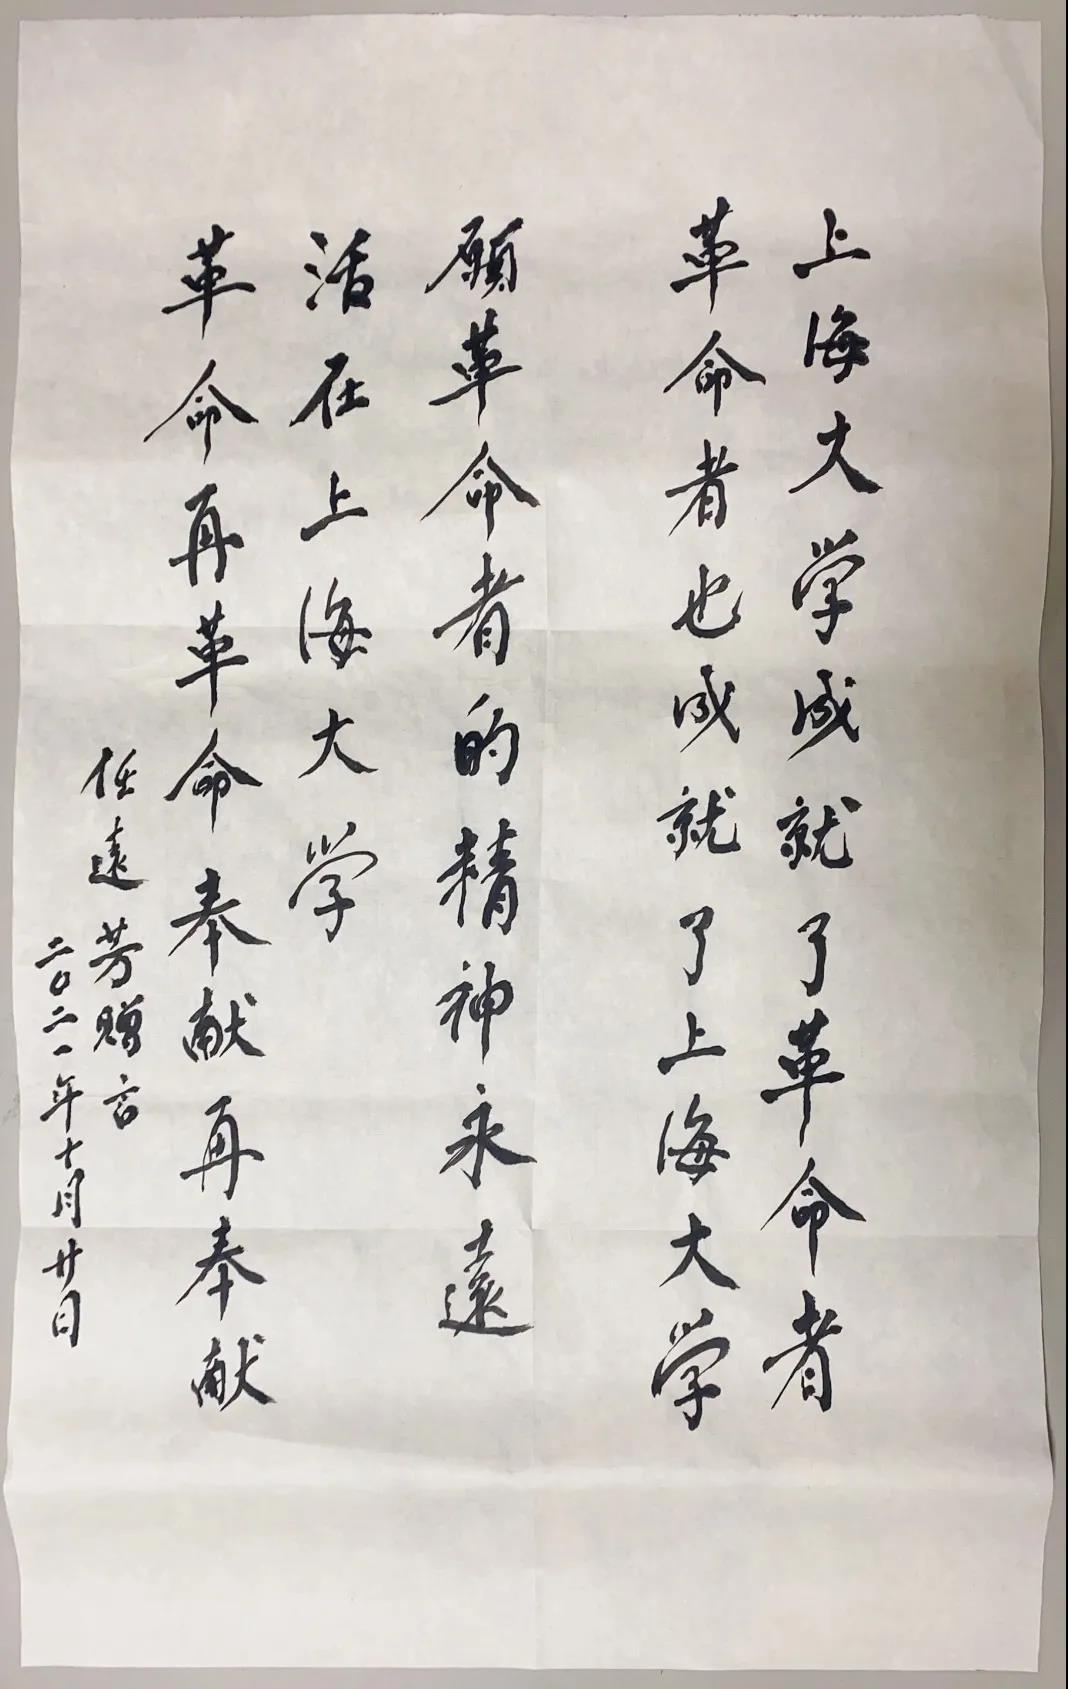 上海大学成就了革命者
革命者也成就了上海大学
願革命者的精神永遠
活在上海大学
革命再革命奉献再奉献
任遠芳贈言
二〇二一年十月廿日